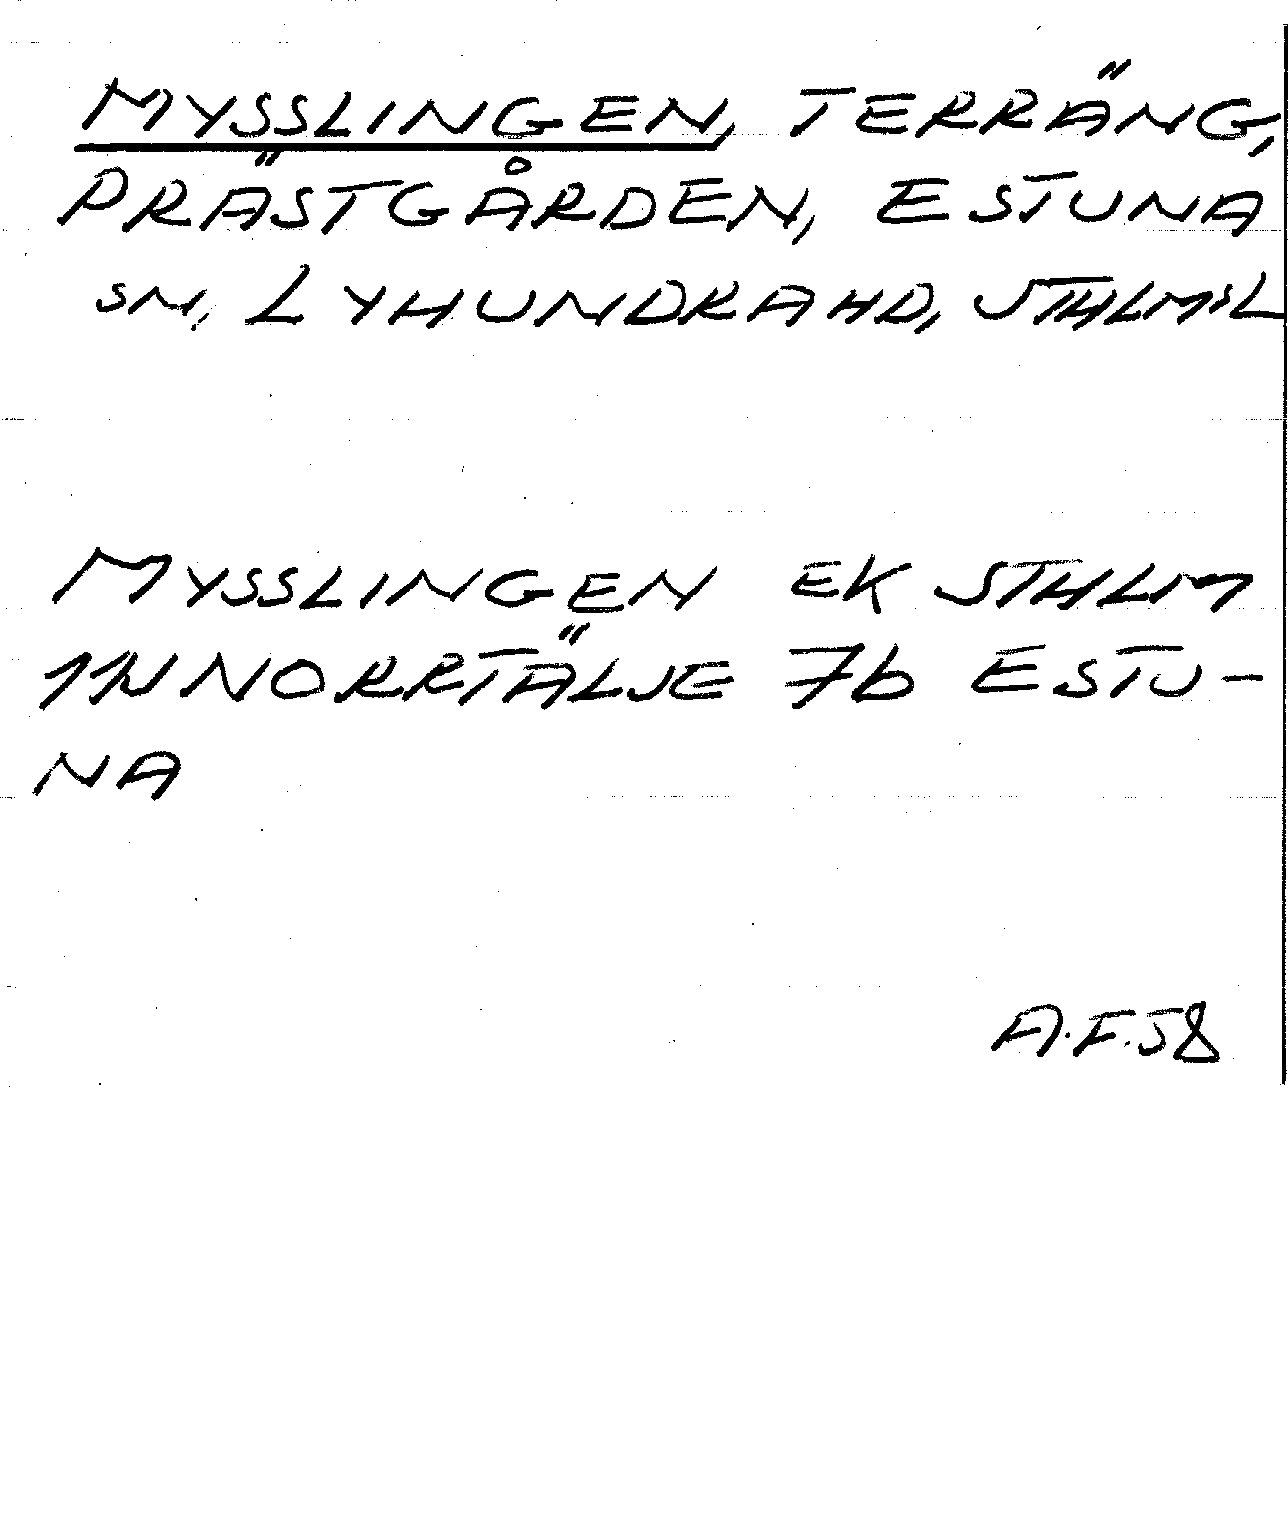 MYSSLINGEN, TERRÄNG,
PRÄSTGÅRDEN, ESTUNA
SN, LYHUNDRA HD, STHLMSL
MYSSLINGEN EK STHLM
11N NORRTÄLJE 7b ESTU-
NA
A.F.58